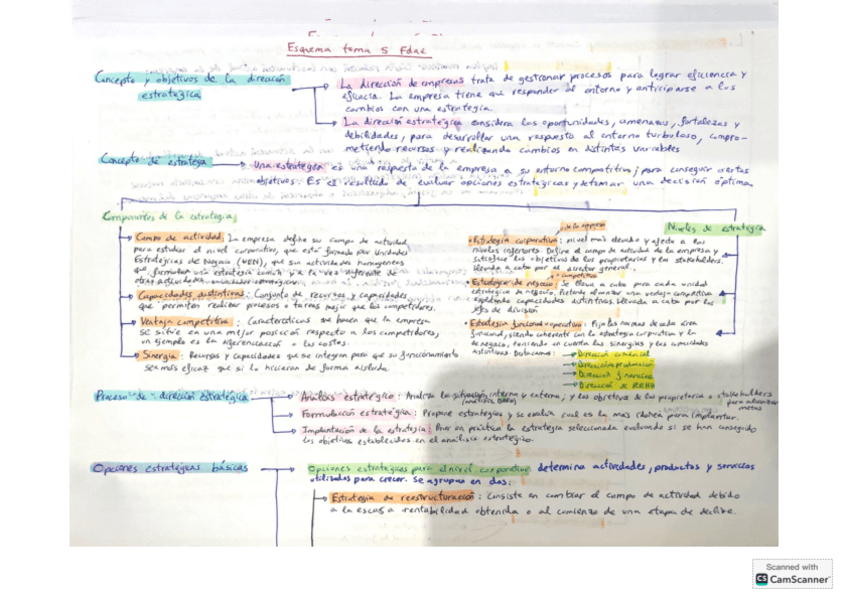 Esquema tema 5 Fdae
Concepto y objetivos de la dirección
estratégica
La dirección de empresas trata de gestionar procesos para lograr eficiencia y
eficacia. La empresa tiene que responder al entorno y anticiparse a los
cambios con una estrategia.
La dirección estratégica considera las oportunidades, amenazas, fortalezas y
debilidades, para desarrollar una respuesta al entorno turbulento, compro-
metiendo recursos y realizando cambios en distintas variables
Concepto de estrategia
Una estrategia es una respuesta de la empresa a su entorno competitivo; para conseguir ciertos
objetivos. Es el resultado de evaluar opciones estratégicas y de tomar una decisión óptima
Componentes de la estrategia
Campo de actividad: La empresa define su campo de actividad
para estudiar el nivel corporativo, que está formado por Unidades
Estratégicas de Negocio (UEN), que son actividades homogéneas
que formulan una estrategia común y a la vez diferente de
otras actividades
Capacidades distintivas: Conjunto de recursos y capacidades
que permiten realizar procesos o tareas mejor que los competidores.
Ventaja competitiva: Características que hacen que la empresa
se sitúe en una mejor posición respecto a los competidores,
un ejemplo es la diferenciación o los costes.
Sinergia: Recursos y capacidades que se integran para que su funcionamiento
sea más eficaz que si lo hicieran de forma aislada.
Niveles de estrategia
o de la empresa
Estrategia corporativa: nivel más elevado y afecta a los
niveles inferiores. Define el campo de actividad de la empresa y
satisface los objetivos de los propietarios y los stakeholders.
Llevada a cabo por el director general.
o competitiva
Estrategia de negocio: Se lleva a cabo para cada unidad
estratégica de negocio. Intenta alcanzar una ventaja competitiva
explotando capacidades distintivas. Llevada a cabo por los
jefes de división
Estrategia funcional-operativa: Fija las normas de cada área
funcional, siendo coherente con la estrategia corporativa y la
de negocio, teniendo en cuenta las sinergias y las capacidades
distintivas. Destacamos:
Dirección comercial
Dirección producción
Dirección financiera
Dirección de RRHH
Proceso de dirección estratégica
Análisis estratégico: Analiza la situación interna y externa, y los objetivos de los propietarios o stakeholders
para alcanzar
metas
Formulación estratégica: Propone estrategias y se evalúa cuál es la más idónea para implantar.
Implantación de la estrategia: Poner en práctica la estrategia seleccionada evaluando si se han conseguido
los objetivos establecidos en el análisis estratégico.
Opciones estratégicas básicas
Opciones estratégicas para el nivel corporativo: determina actividades, productos y servicios
utilizados para crecer. Se agrupan en dos:
Estrategia de reestructuración: Consiste en cambiar el campo de actividad debido
a la escasa rentabilidad obtenida o al comienzo de una etapa de declive.
Scanned with
CS CamScanner